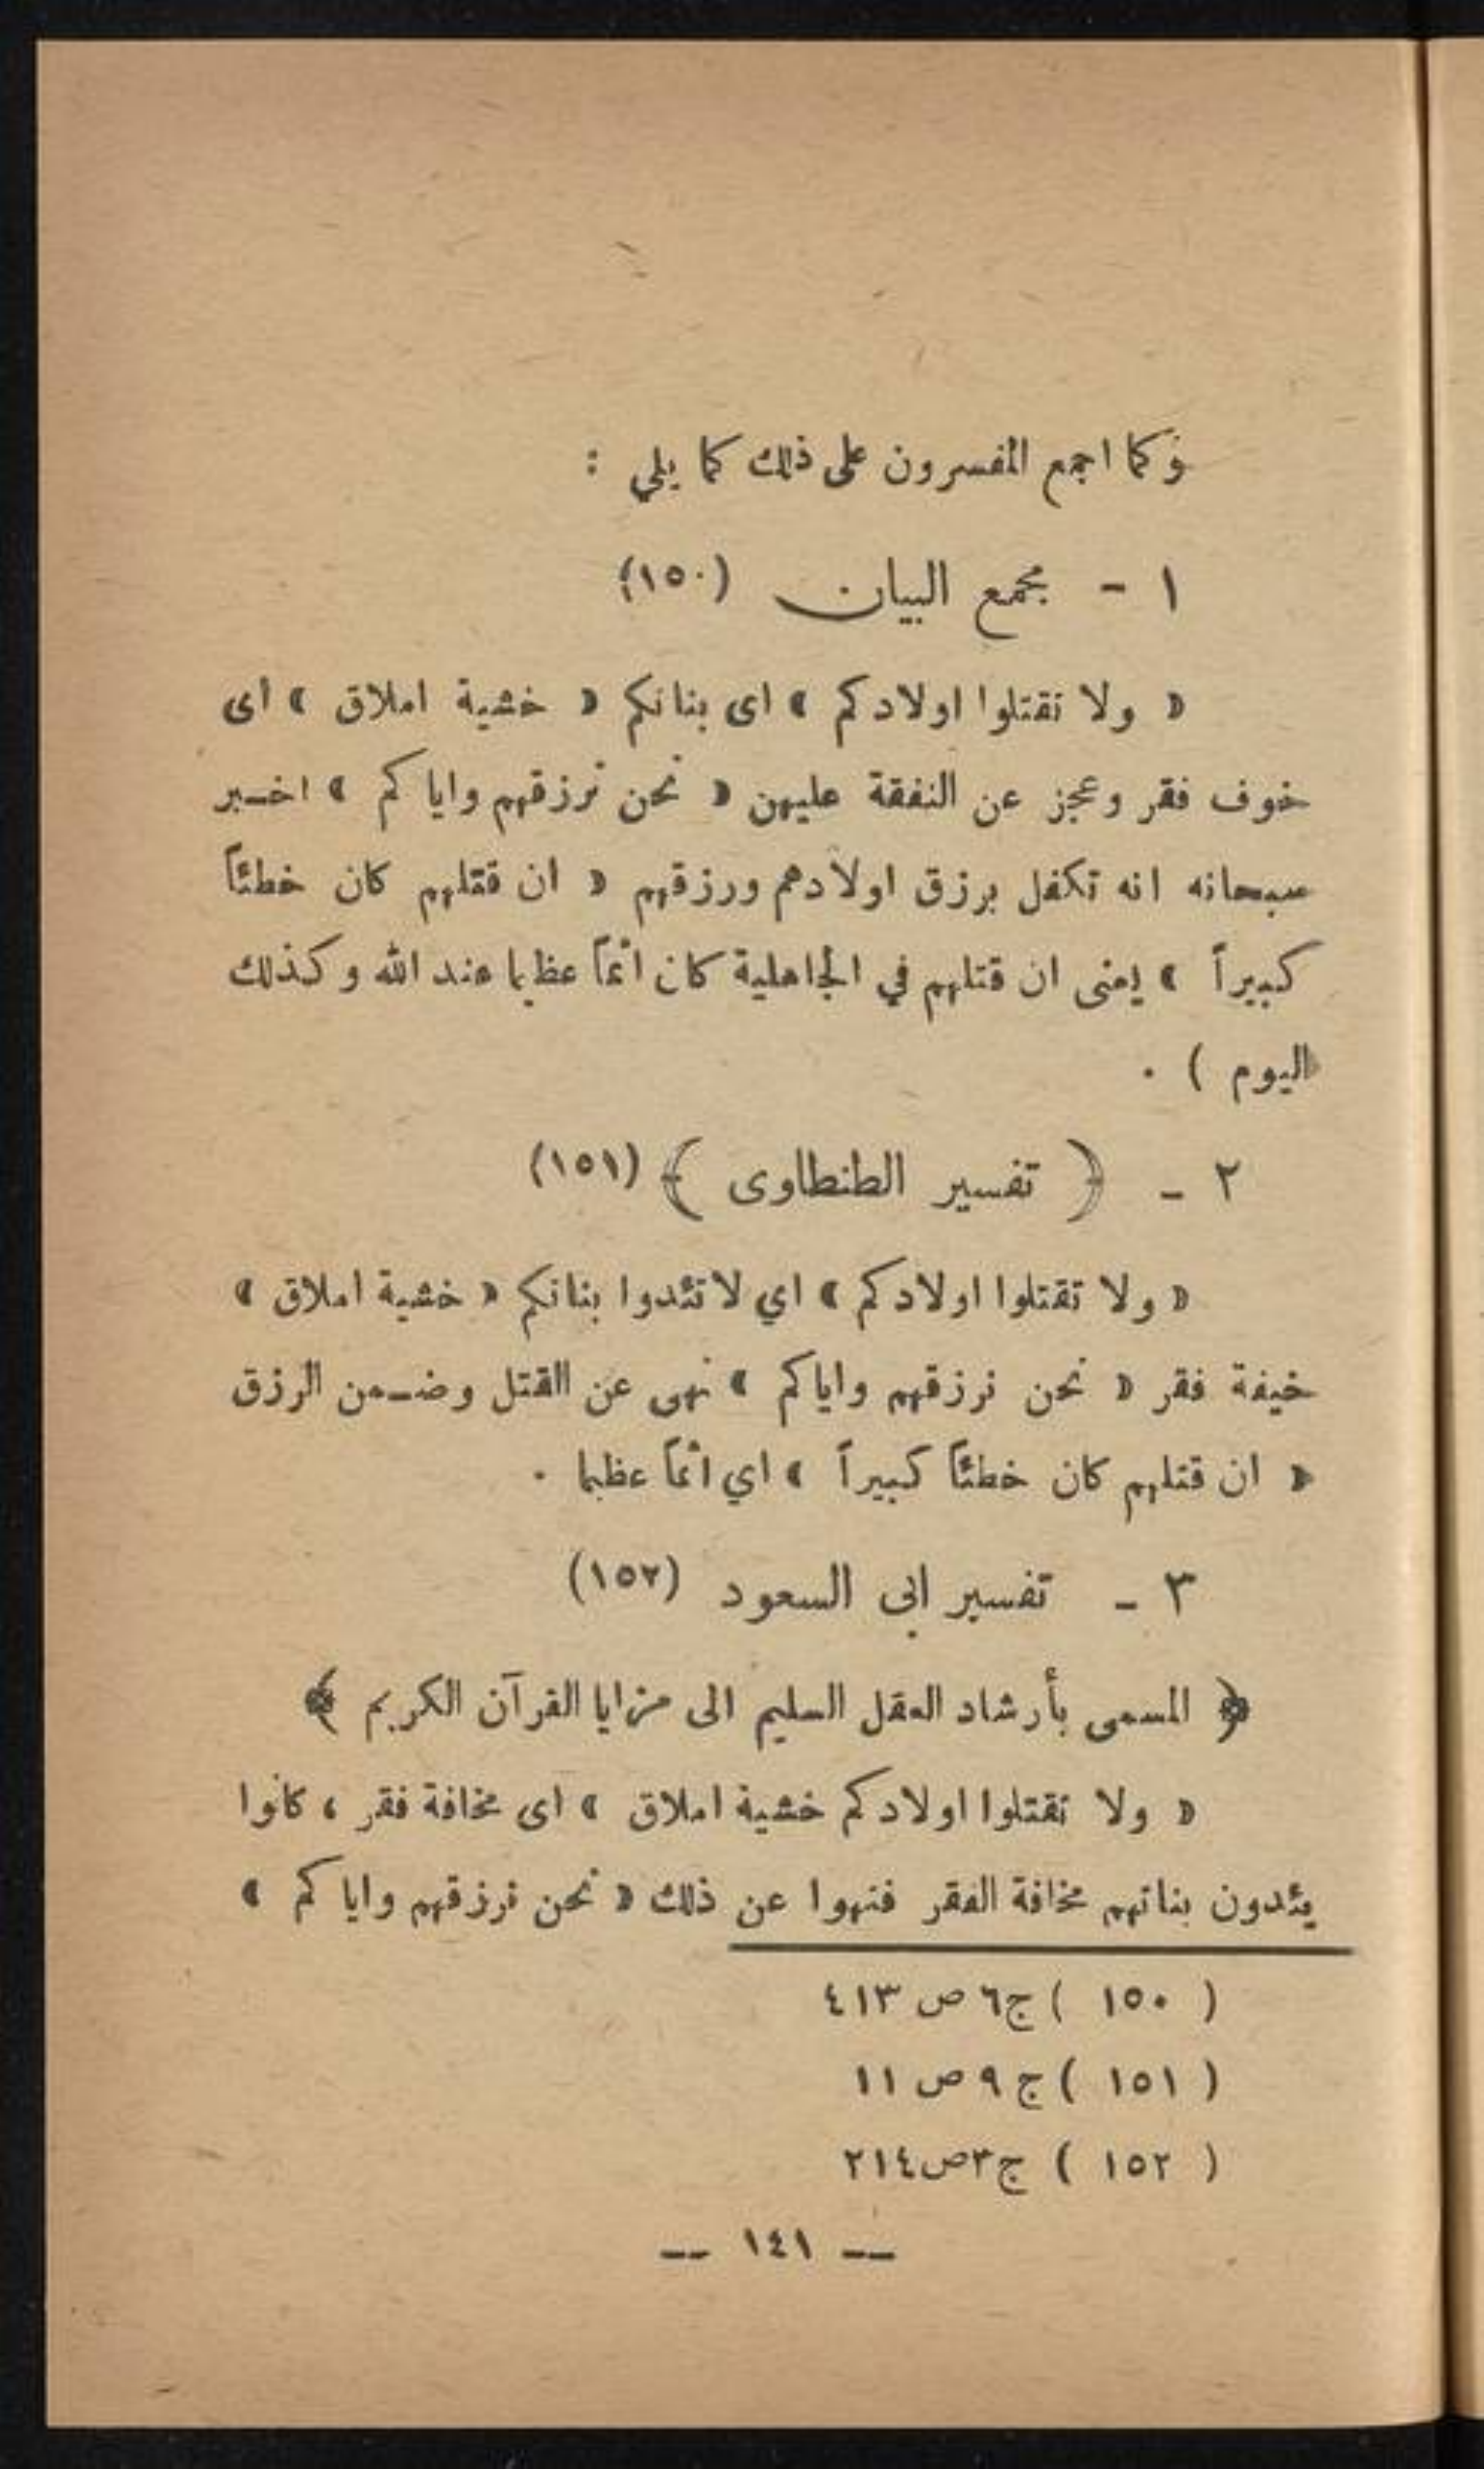 وكما اجمع المفسرون على ذلك كما يلي :
١ - مجمع البيان (١٥٠)
« ولا تقتلوا اولادكم » اى بناتكم « خشية املاق » اى
خوف فقر وعجز عن النفقة عليهن « نحن نرزقهم واياكم » اخبر
سبحانه انه تكفل برزق اولادهم ورزقهم « ان قتلهم كان خطئاً
كبيراً » يعنى ان قتلهم في الجاهلية كان اثماً عظيما عند الله وكذلك
اليوم ) .
٢ - ﴿ تفسير الطنطاوى ﴾ (١٥١)
« ولا تقتلوا اولادكم » اي لا تئدوا بناتكم « خشية املاق »
خيفة فقر « نحن نرزقهم واياكم » نهى عن القتل وضمن الرزق
« ان قتلهم كان خطئاً كبيراً » اي اثماً عظيما .
٣ - تفسير ابى السعود (١٥٢)
﴿ المسمى بأرشاد العقل السليم الى مزايا القرآن الكريم ﴾
« ولا تقتلوا اولادكم خشية املاق » اى مخافة فقر ، كانوا
يئدون بناتهم مخافة الفقر فنهوا عن ذلك « نحن نرزقهم واياكم »
( ١٥٠ ) ج٦ ص ٤١٣
( ١٥١ ) ج ٩ ص ١١
( ١٥٢ ) ج٣ص٢١٤
— ١٤١ —